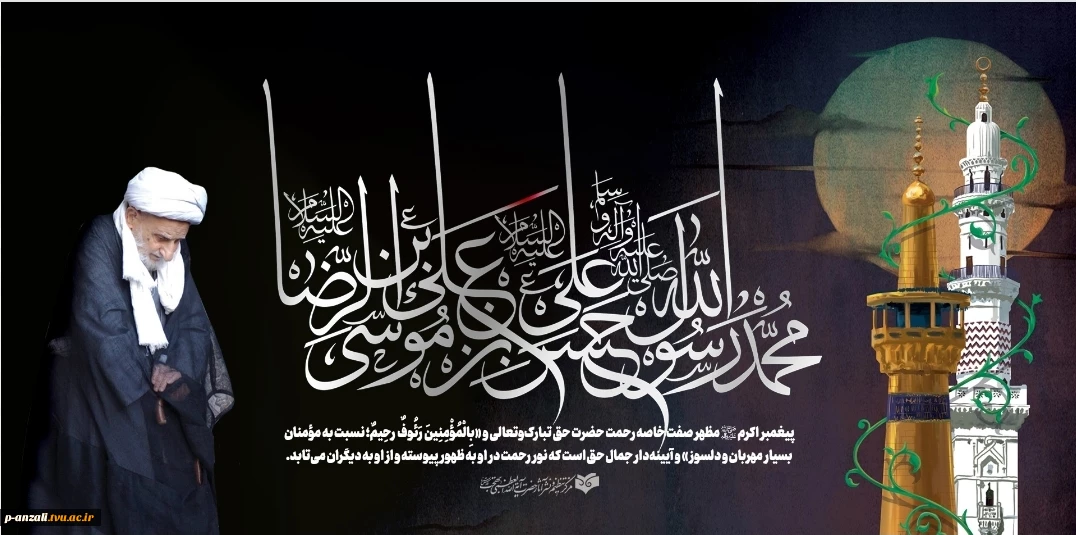 محمد رسول الله صلی الله علیه وآله وسلم
حسن بن علی علیه السلام
علی بن موسی الرضا علیه السلام
پیغمبر اکرم ﷺ مظهر صفت خاصه رحمت حضرت حق تبارک‌وتعالی و «بِالْمُؤْمِنِینَ رَئُوفٌ رَحِیمٌ؛ نسبت به مؤمنان
بسیار مهربان و دلسوز» و آیینه‌دار جمال حق است که نور رحمت در او به ظهور پیوسته و از او به دیگران می‌تابد.
p-anzali.tvu.ac.ir